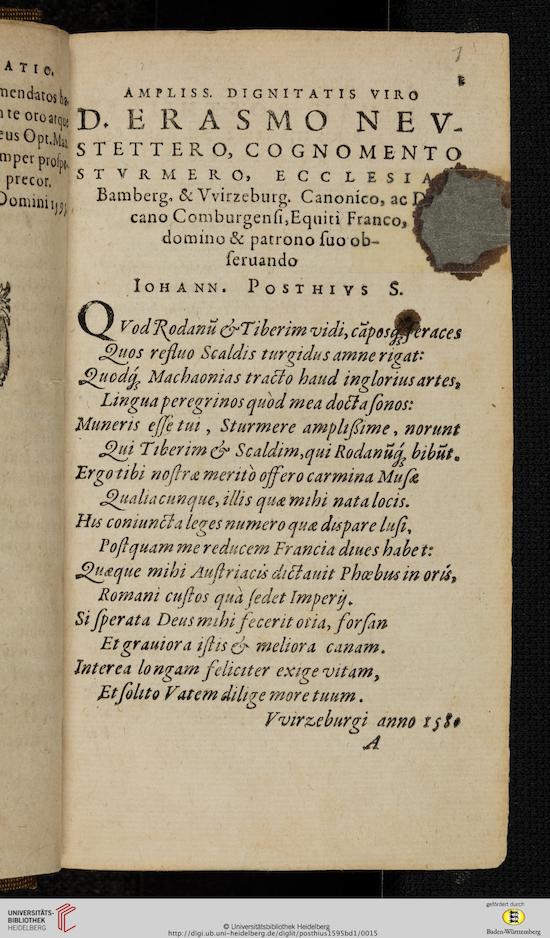 ATIO.
mendatos ha-
nte oro atque
eus Opt. Max
mper prospe-
precor.
Domini 1595
1
AMPLISS. DIGNITATIS VIRO
D. ERASMO NEV-
STETTERO, COGNOMENTO
STVRMERO, ECCLESIA
Bamberg. & Vvirzeburg. Canonico, ac D
cano Comburgensi, Equiti Franco,
domino & patrono suo ob-
seruando
IOHANN. POSTHIVS S.
QVod Rodanū & Tiberim vidi, cāposq́; feraces
Quos refluo Scaldis turgidus amne rigat:
Quodq́; Machaonias tracto haud inglorius artes,
Lingua peregrinos quòd mea docta sonos:
Muneris esse tui, Sturmere amplißime, norunt
Qui Tiberim & Scaldim, qui Rodanūq́; bibūt.
Ergo tibi nostræ meritò offero carmina Musæ
Qualiacunque, illis quæ mihi nata locis.
His coniuncta leges numero quæ dispare lusi,
Postquam me reducem Francia diues habet:
Quæque mihi Austriacis dictauit Phœbus in oris,
Romani custos quà sedet Imperij.
Si sperata Deus mihi fecerit otia, forsan
Et grauiora istis & meliora canam.
Interea longam feliciter exige vitam,
Et solito Vatem dilige more tuum.
Vvirzeburgi anno 1580
A
UNIVERSITÄTS-
BIBLIOTHEK
HEIDELBERG
© Universitätsbibliothek Heidelberg
http://digi.ub.uni-heidelberg.de/diglit/posthius1595bd1/0015
gefördert durch
Baden-Württemberg